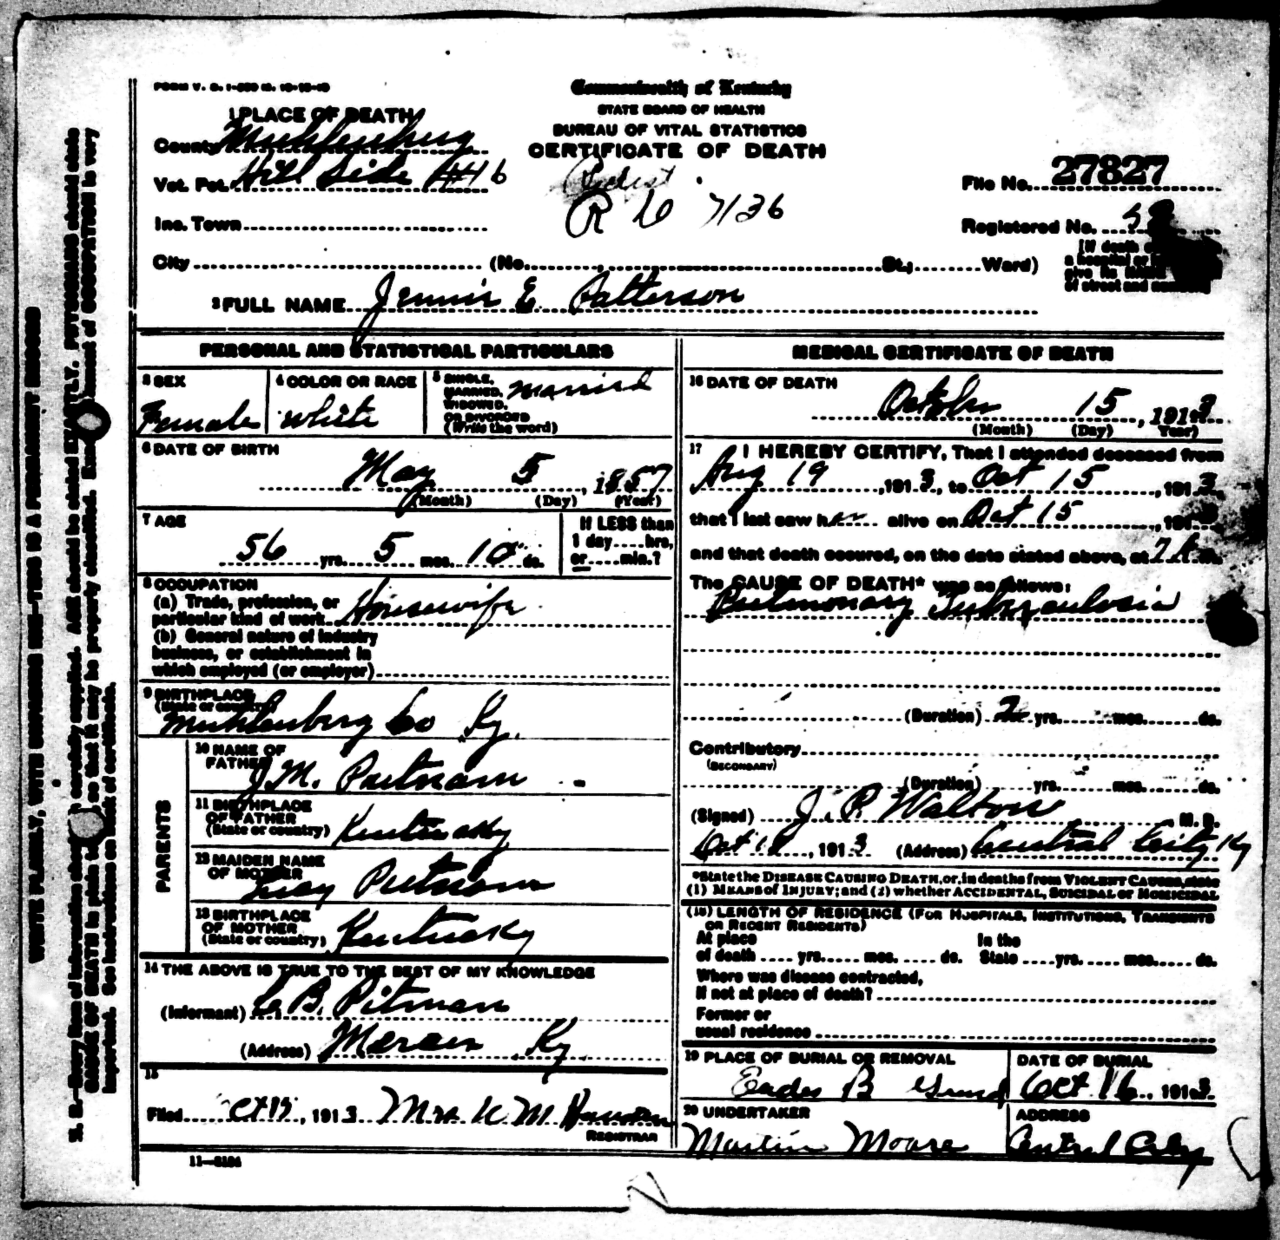 FORM V. S. 1-
Commonwealth of Kentucky
STATE BOARD OF HEALTH
BUREAU OF VITAL STATISTICS
CERTIFICATE OF DEATH
1 PLACE OF DEATH
County Muhlenburg
Vot. Pct. Hill Side #46
Inc. Town
City (No. St.; Ward)
R C 7136
File No. 27827
Registered No.
[If death
a hospital or
give its
of street and
2 FULL NAME Jennie E. Patterson
PERSONAL AND STATISTICAL PARTICULARS
3 SEX
Female
4 COLOR OR RACE
White
5 SINGLE, MARRIED, WIDOWED, OR DIVORCED (Write the word) Married
6 DATE OF BIRTH
May 5, 1857
(Month) (Day) (Year)
7 AGE
56 yrs. 5 mos. 10 ds.
If LESS than
1 day....hrs,
or.....min.?
8 OCCUPATION
(a) Trade, profession, or
particular kind of work Housewife
(b) General nature of industry
business, or establishment in
which employed (or employer)
9 BIRTHPLACE
(State or country)
Muhlenberg Co Ky.
PARENTS
10 NAME OF
FATHER J. M. Putnam
11 BIRTHPLACE
OF FATHER
(State or country) Kentucky
12 MAIDEN NAME
OF MOTHER Putnam
13 BIRTHPLACE
OF MOTHER
(State or country) Kentucky
14 THE ABOVE IS TRUE TO THE BEST OF MY KNOWLEDGE
(Informant) C B. Pitman
(Address) Mercer Ky
15
Filed Oct 18, 1913 Mrs K M
REGISTRAR
11—5184
MEDICAL CERTIFICATE OF DEATH
16 DATE OF DEATH
October 15, 1913
(Month) (Day) (Year)
17 I HEREBY CERTIFY, That I attended deceased from
Aug 19, 1913, to Oct 15, 1913,
that I last saw her alive on Oct 15, 191
and that death occured, on the date stated above, at 7 A m.
The CAUSE OF DEATH* was as follows:
Pulmonary Tuberculosis
(Duration) 2 yrs. mos. ds.
Contributory
(SECONDARY)
(Duration) yrs. mos. ds.
(Signed) J. P. Walton M. D.
Oct 18, 1913 (Address) Central City Ky
*State the DISEASE CAUSING DEATH, or, in deaths from VIOLENT CAUSES, state
(1) MEANS of INJURY; and (2) whether ACCIDENTAL, SUICIDAL or HOMICIDAL
(18) LENGTH OF RESIDENCE (FOR HOSPITALS, INSTITUTIONS, TRANSIENTS
OR RECENT RESIDENTS)
At place In the
of death yrs. mos. ds. State yrs. mos. ds.
Where was disease contracted,
if not at place of death?
Former or
usual residence
19 PLACE OF BURIAL OR REMOVAL
Eades B Grund
DATE OF BURIAL
Oct 16, 1913
20 UNDERTAKER
Martin Moore
ADDRESS
Central City
WRITE PLAINLY, WITH UNFADING INK—THIS IS A PERMANENT RECORD
N. B.—Every item of information should be carefully supplied. AGE should be stated EXACTLY. PHYSICIANS should state
CAUSE OF DEATH in plain terms, so that it may be properly classified. Exact statement of OCCUPATION is very
important. See instructions on back of certificate.